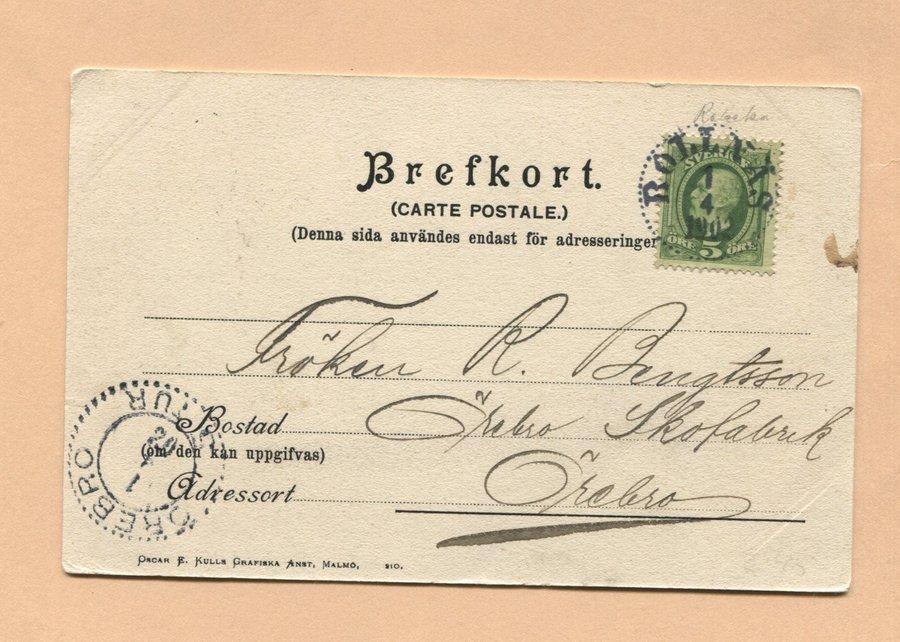 Brefkort.
(CARTE POSTALE.)
(Denna sida användes endast för adresseringen
BOLLEÅS
1
4
1902
SVERIGE
ÖRE 5 ÖRE
Fröken R. Bengtsson
Bostad Örebro Skofabrik
(om den kan uppgifvas)
Adressort Örebro
ÖREBRO TUR
OSCAR E. KULLS GRAFISKA ANST, MALMÖ, 210.